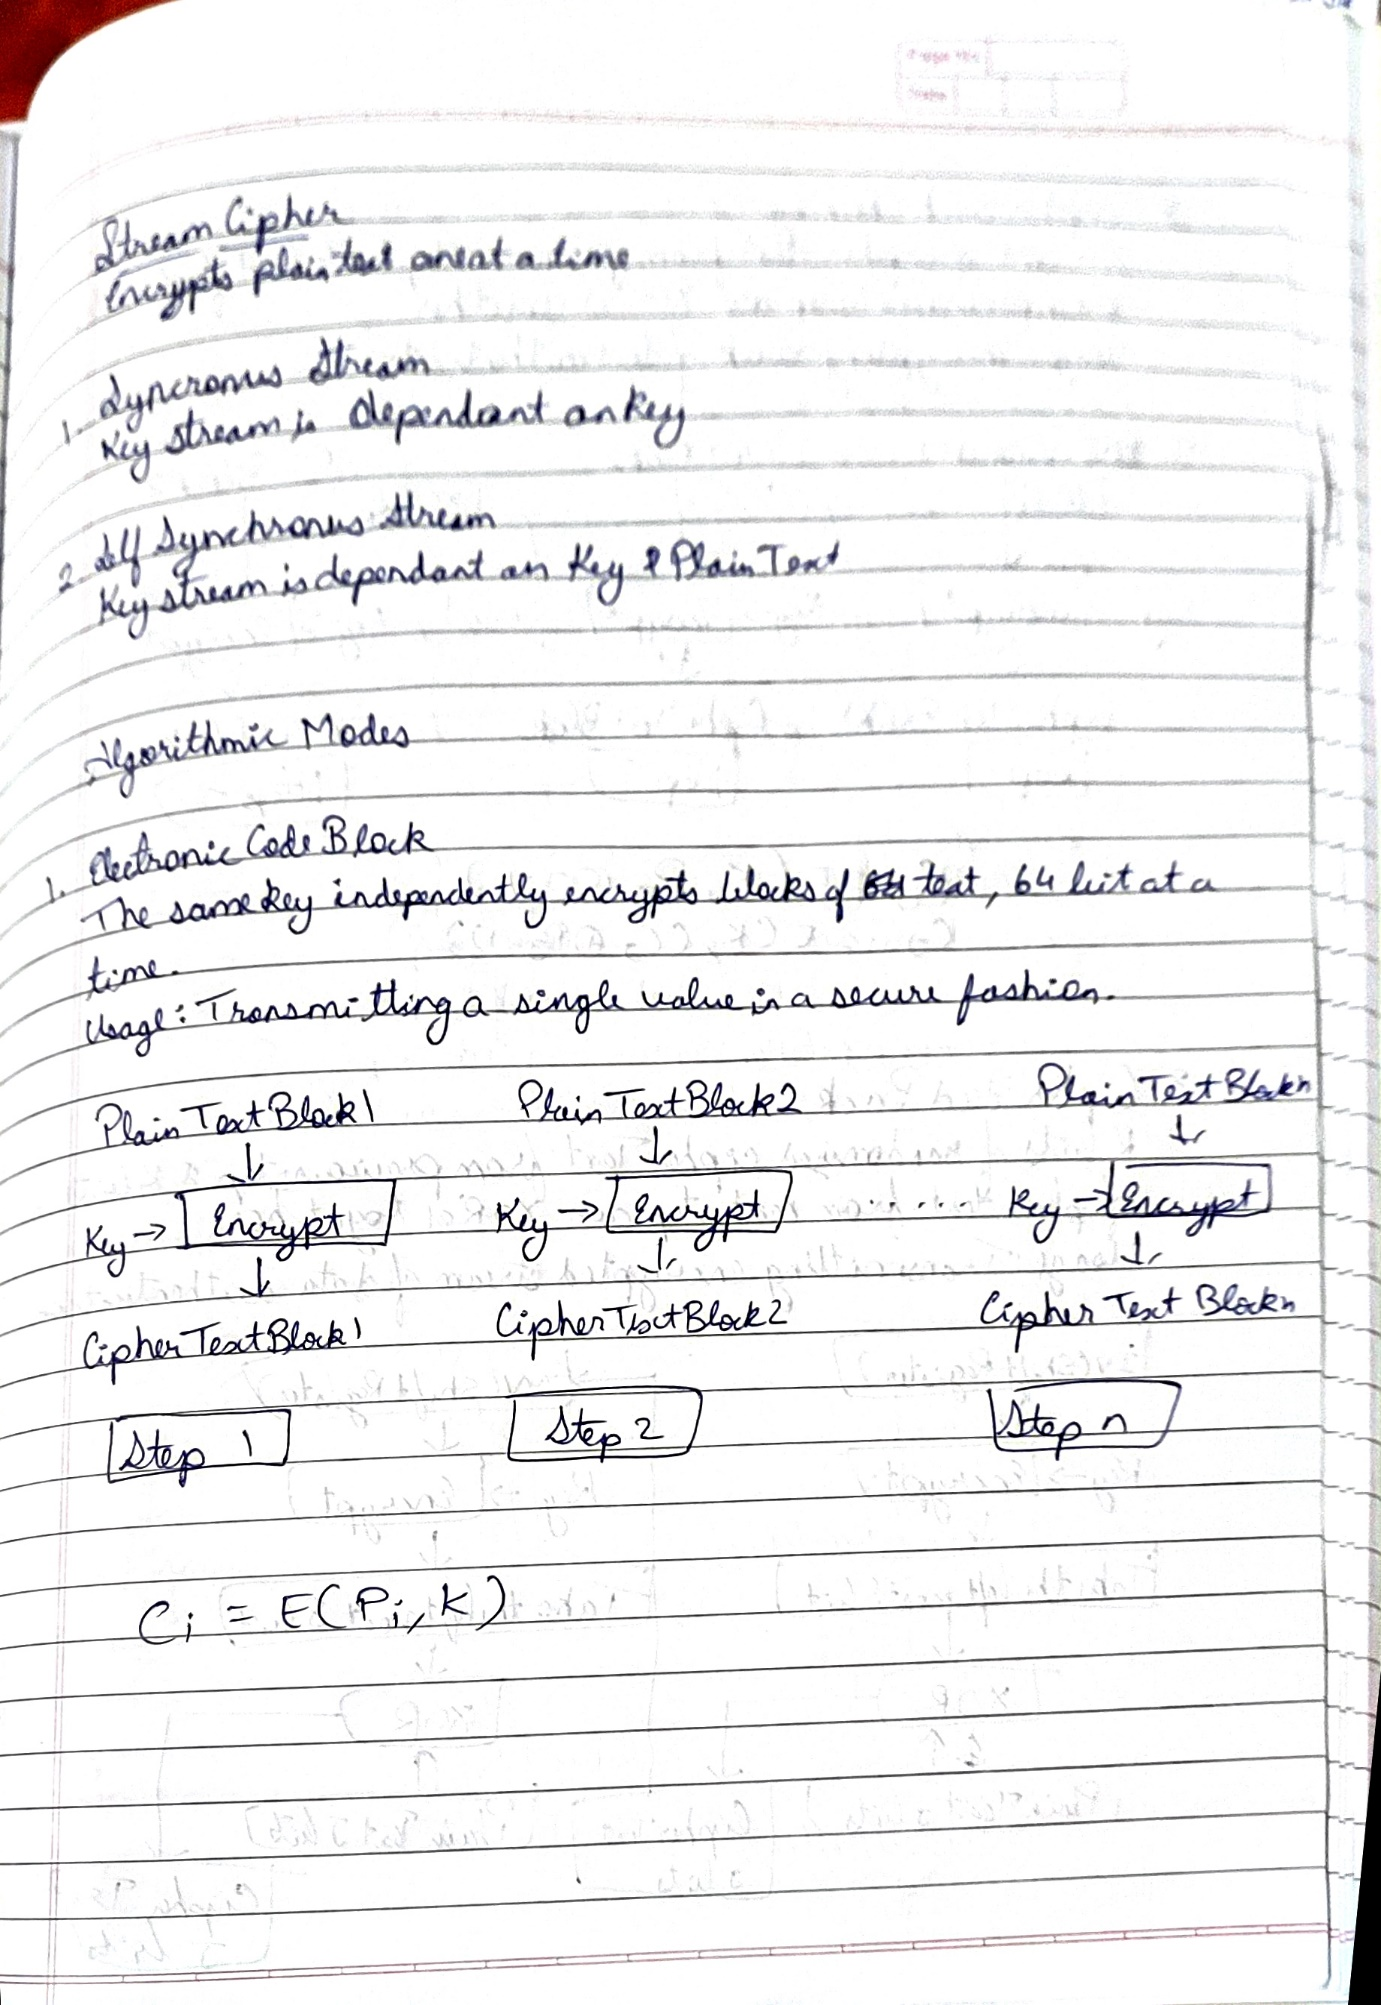 Stream Cipher
Encrypts plain text oneat a time
1. Syncronus Stream
Key stream is dependant on key
2. Self Synchronus Stream
Key stream is dependant on Key & Plain Text
Algorithmic Modes
1. Electronic Code Block
The same key independently encrypts blocks of text, 64 bit at a
time.
Usage: Transmitting a single value in a secure fashion.
Plain Text Block 1 Plain Text Block 2 Plain Text Block n
↓ ↓ ↓
Key → Encrypt Key → Encrypt ...... Key → Encrypt
↓ ↓ ↓
Cipher Text Block 1 Cipher Text Block 2 Cipher Text Block n
Step 1 Step 2 Step n
Ci = E(Pi, K)